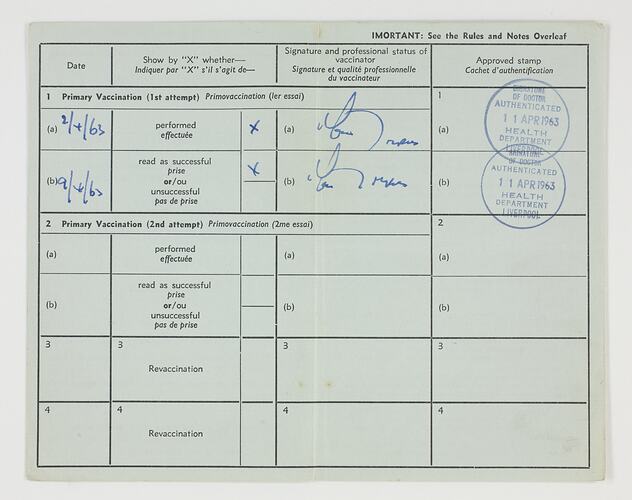 IMORTANT: See the Rules and Notes Overleaf
Date
Show by "X" whether—
Indiquer par "X" s'il s'agit de—
Signature and professional status of
vaccinator
Signature et qualité professionnelle
du vaccinateur
Approved stamp
Cachet d'authentification
1 Primary Vaccination (1st attempt) Primovaccination (1er essai)
1
(a) 2/4/63
performed
effectuée
X
(a)
(a)
SIGNATURE
OF DOCTOR
AUTHENTICATED
11 APR 1963
HEALTH
DEPARTMENT
LIVERPOOL
(b) 9/4/63
read as successful
prise
or/ou
unsuccessful
pas de prise
X
(b)
(b)
SIGNATURE
OF DOCTOR
AUTHENTICATED
11 APR 1963
HEALTH
DEPARTMENT
LIVERPOOL
2 Primary Vaccination (2nd attempt) Primovaccination (2me essai)
2
(a)
performed
effectuée
(a)
(a)
(b)
read as successful
prise
or/ou
unsuccessful
pas de prise
(b)
(b)
3
3
Revaccination
3
3
4
4
Revaccination
4
4